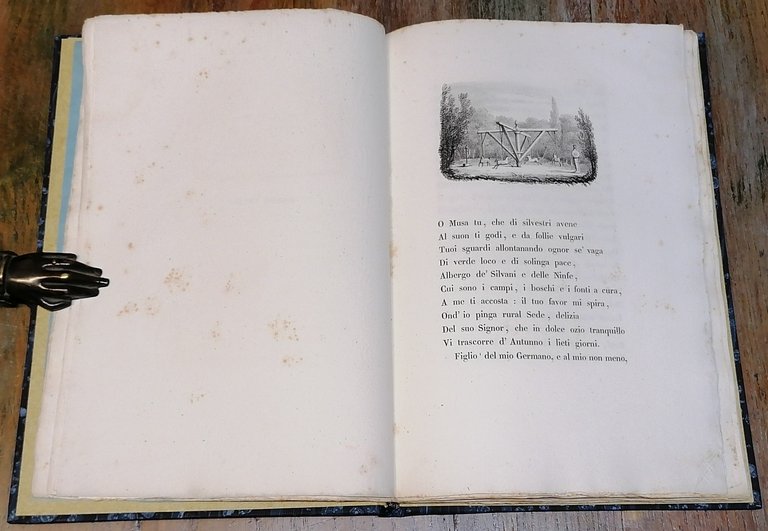 O Musa tu, che di silvestri avene
Al suon ti godi, e da follie vulgari
Tuoi sguardi allontanando ognor se' vaga
Di verde loco e di solinga pace,
Albergo de' Silvani e delle Ninfe,
Cui sono i campi, i boschi e i fonti a cura,
A me ti accosta : il tuo favor mi spira,
Ond' io pinga rural Sede, delizia
Del suo Signor, che in dolce ozio tranquillo
Vi trascorre d' Autunno i lieti giorni.
Figlio' del mio Germano, e al mio non meno,